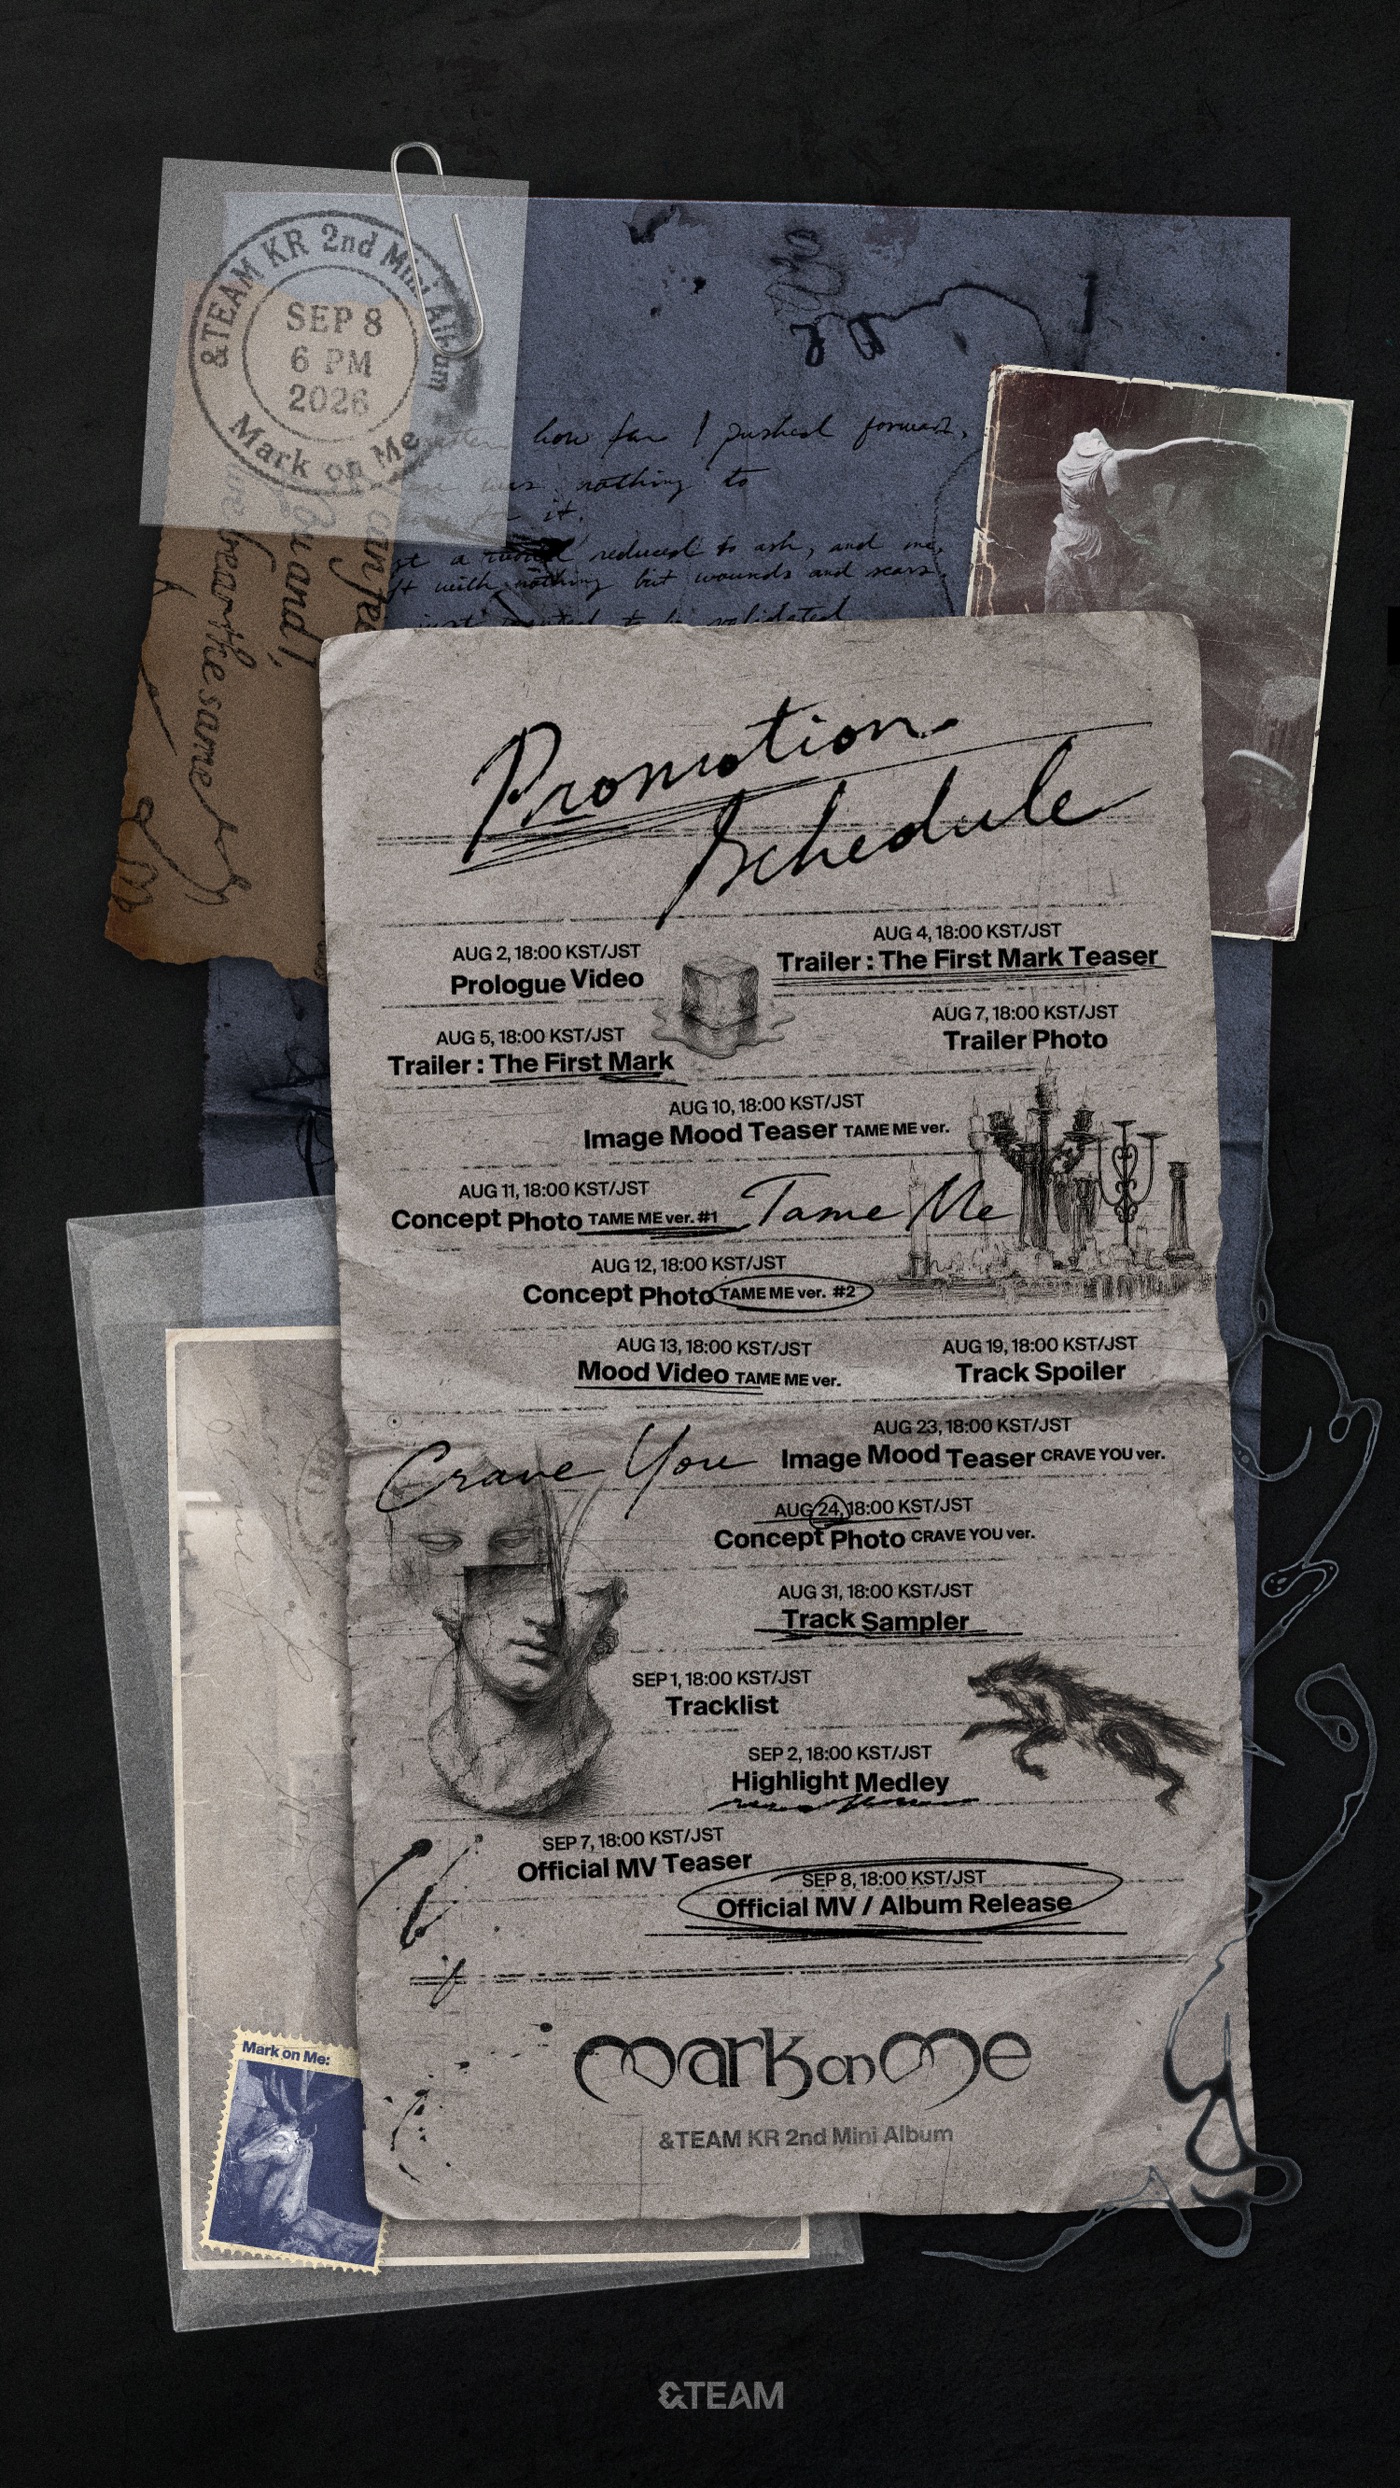 &TEAM KR 2nd Mini Album
SEP 8
6 PM
2026
Mark on Me
how far I pushed forward,
was nothing to
it.
a world reduced to ash, and me,
with nothing but wounds and scars.
to be validated
you and I,
we bear the same
Promotion
Schedule
AUG 2, 18:00 KST/JST
Prologue Video
AUG 4, 18:00 KST/JST
Trailer : The First Mark Teaser
AUG 5, 18:00 KST/JST
Trailer : The First Mark
AUG 7, 18:00 KST/JST
Trailer Photo
AUG 10, 18:00 KST/JST
Image Mood Teaser TAME ME ver.
AUG 11, 18:00 KST/JST
Concept Photo TAME ME ver. #1
Tame Me
AUG 12, 18:00 KST/JST
Concept Photo TAME ME ver. #2
AUG 13, 18:00 KST/JST
Mood Video TAME ME ver.
AUG 19, 18:00 KST/JST
Track Spoiler
Crave You
AUG 23, 18:00 KST/JST
Image Mood Teaser CRAVE YOU ver.
AUG 24, 18:00 KST/JST
Concept Photo CRAVE YOU ver.
AUG 31, 18:00 KST/JST
Track Sampler
SEP 1, 18:00 KST/JST
Tracklist
SEP 2, 18:00 KST/JST
Highlight Medley
SEP 7, 18:00 KST/JST
Official MV Teaser
SEP 8, 18:00 KST/JST
Official MV / Album Release
mark on me
&TEAM KR 2nd Mini Album
Mark on Me:
&TEAM